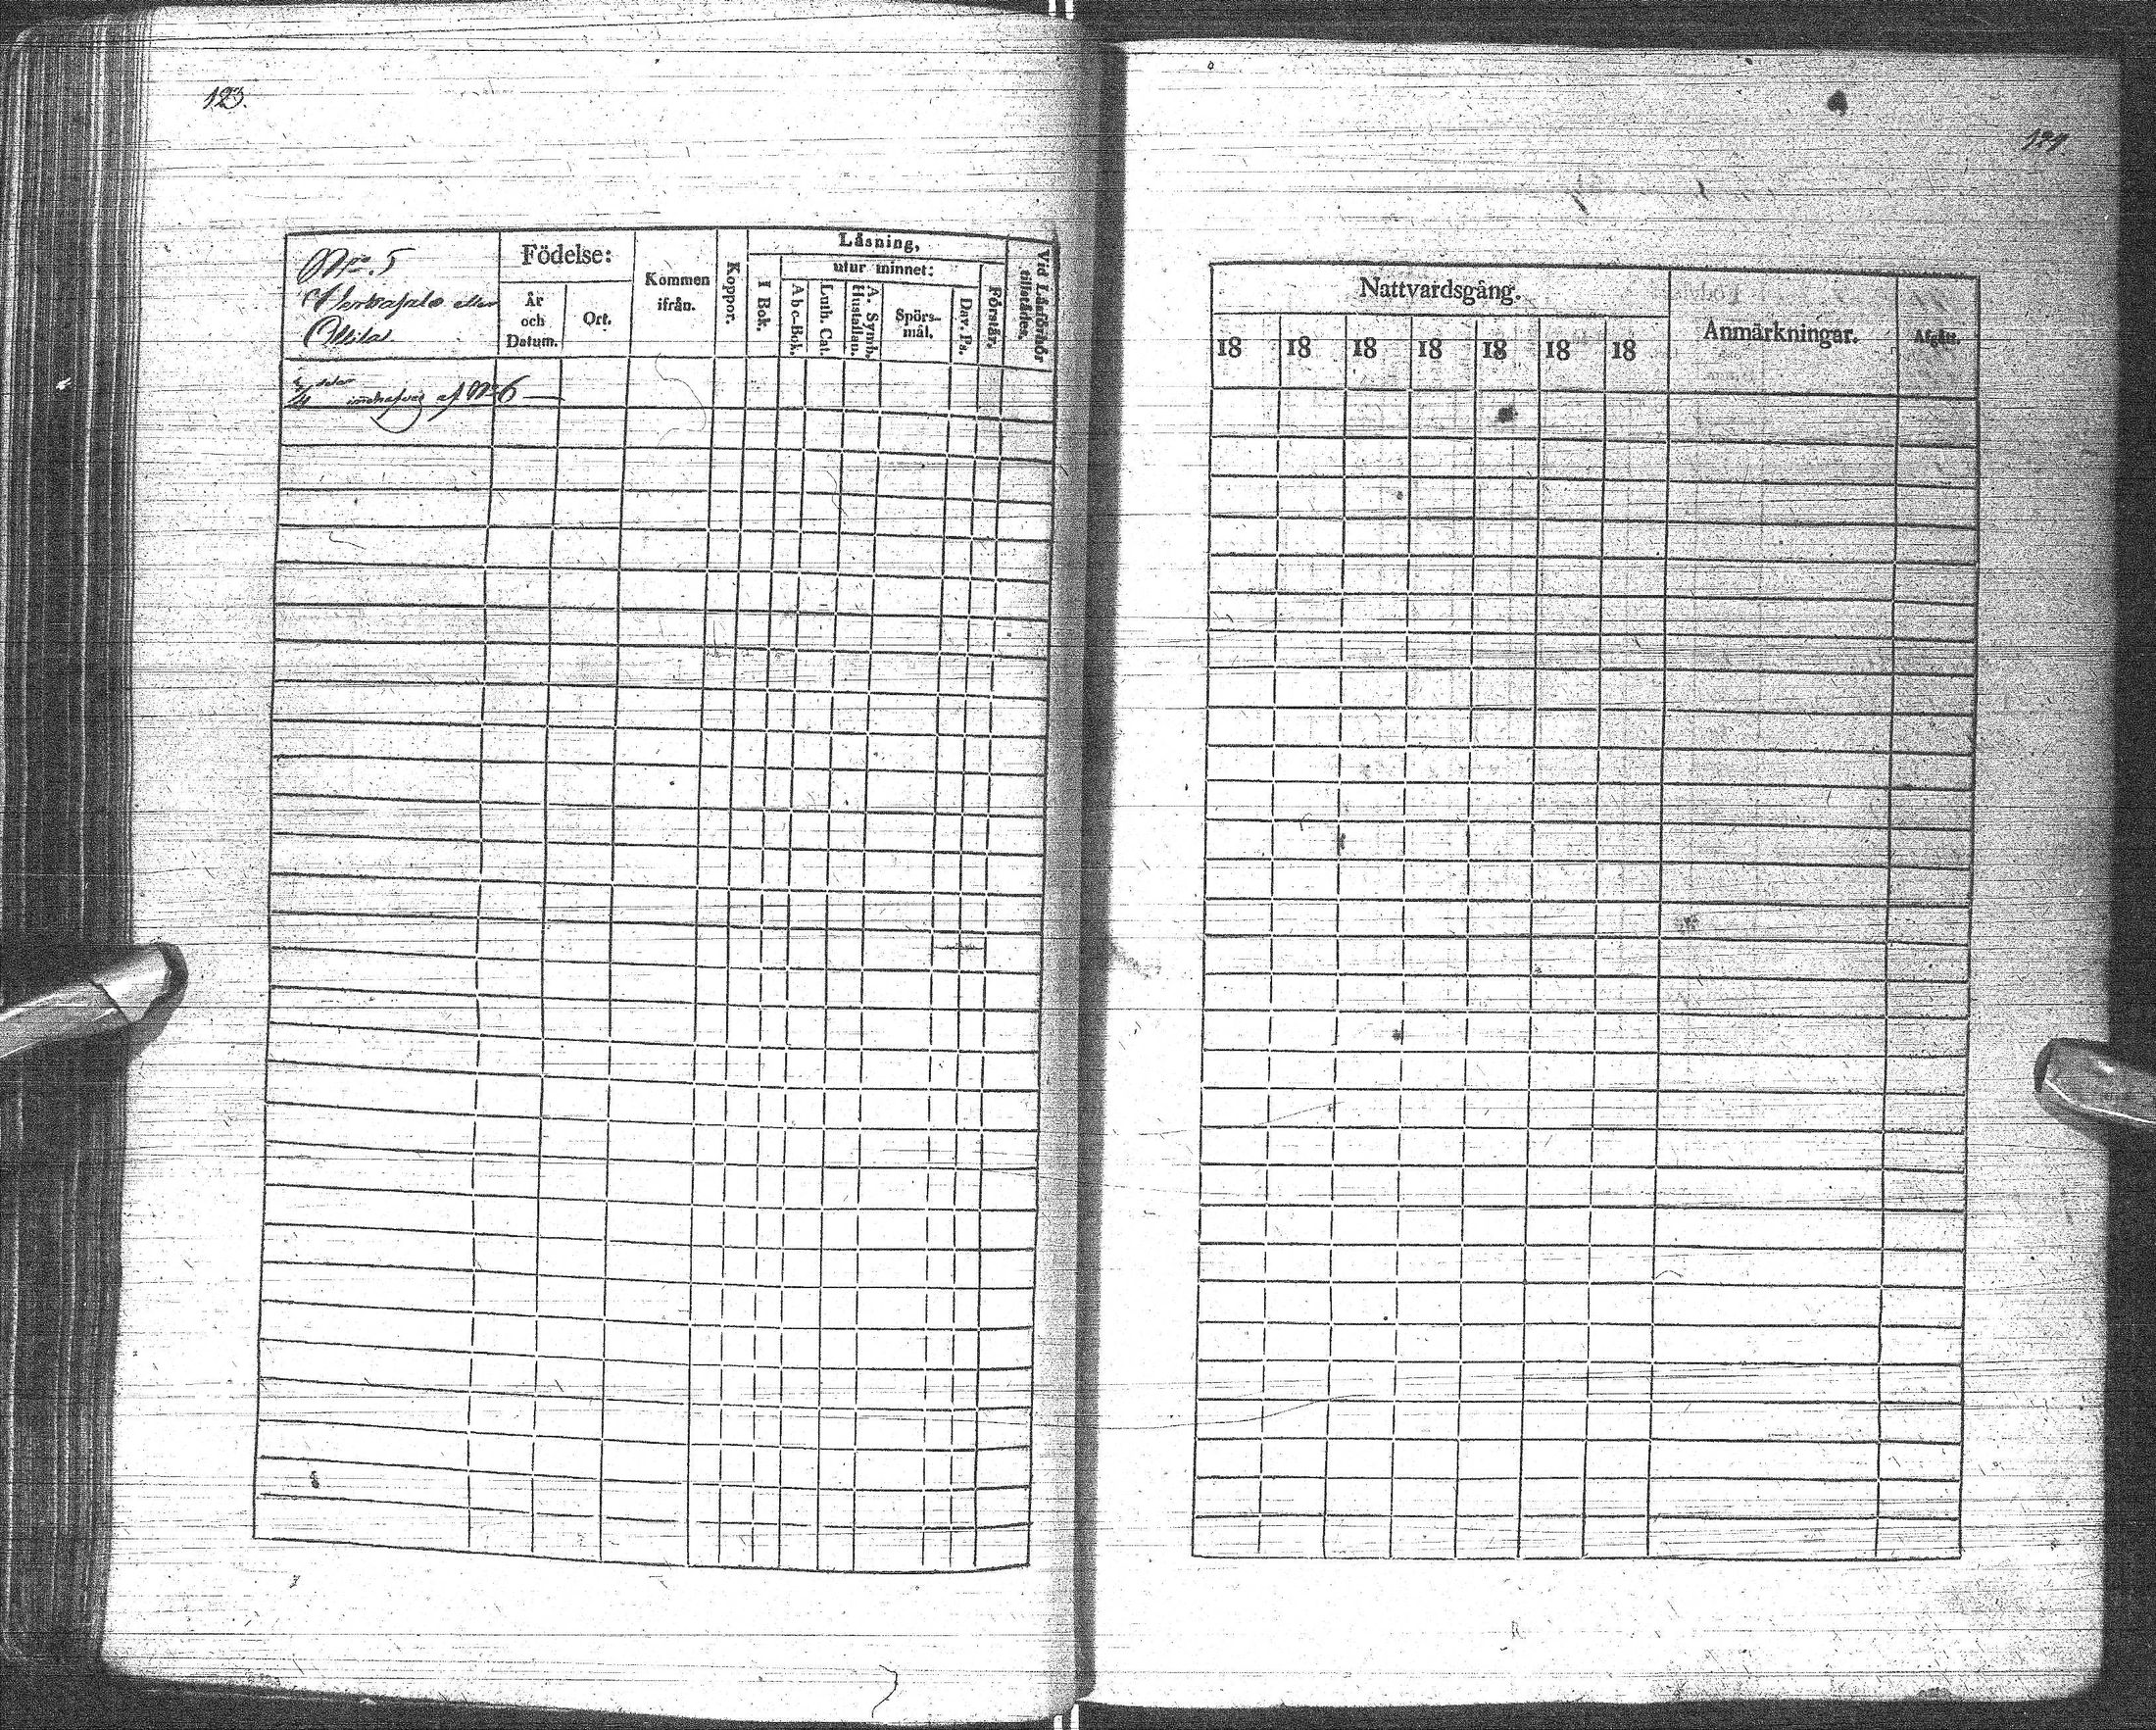 123.
No. 5
eller
Ollila
Födelse:
År och Datum.
Ort.
Kommen ifrån.
Koppor.
Läsning,
I Bok.
utur minnet:
A b c-Bok.
Luth. Cat.
A. Symb. Hustaflan.
Spörsmål.
Dav. Ps.
Förstår.
Vid Läsförhör tillstädes.
af No 6
Nattvardsgång.
18 18 18 18 18 18 18
Anmärkningar.
Afgått.